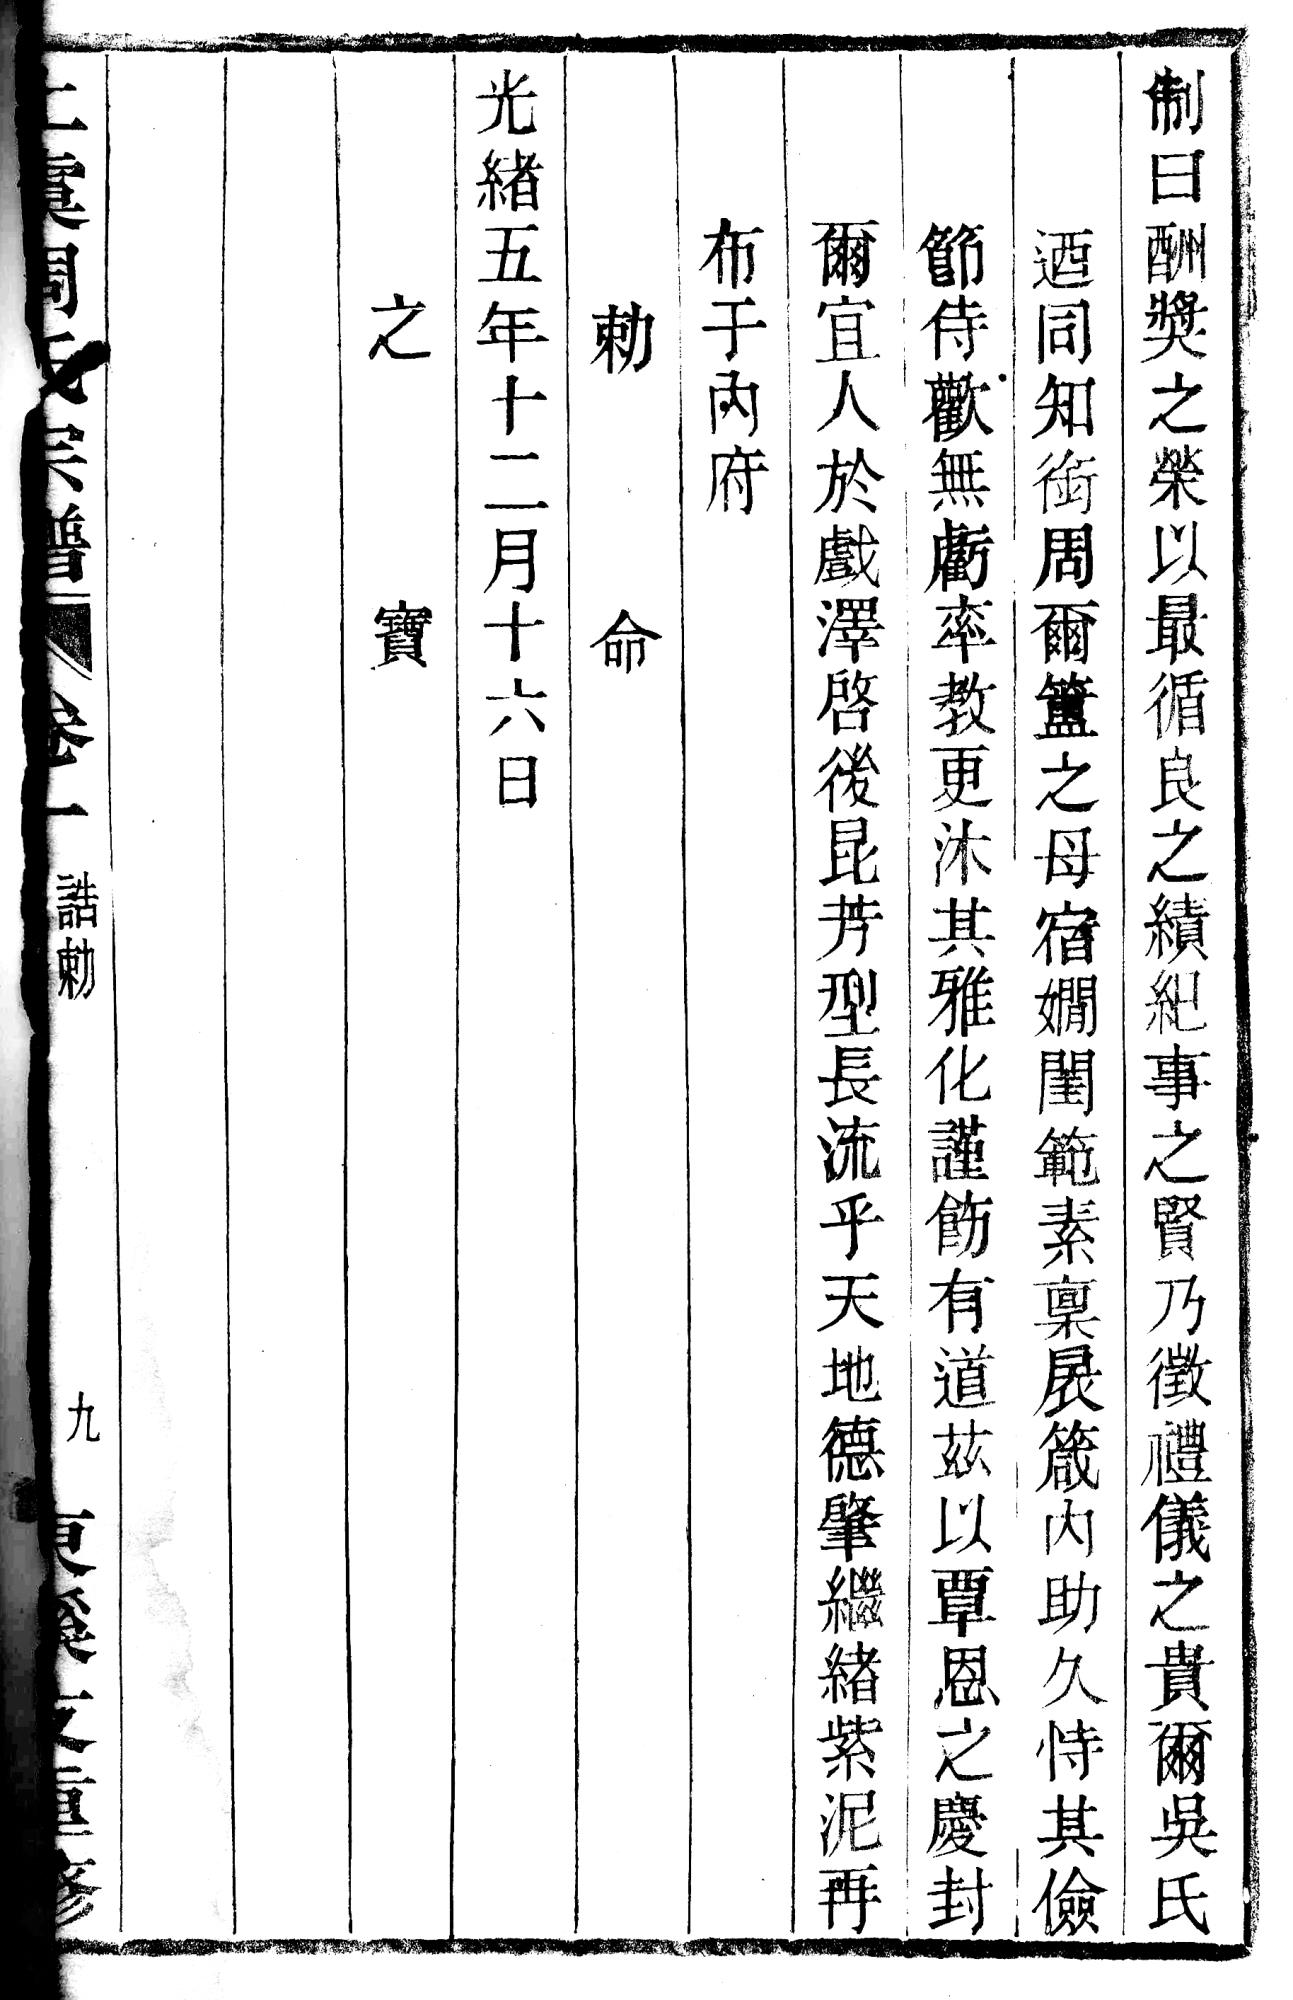 制曰酬獎之榮以最循良之績紀事之賢乃徵禮儀之貴爾吳氏
迺同知銜周爾簠之母宿嫺閨範素稟扆箴內助久恃其儉
節侍歡無虧率教更沐其雅化謹飭有道茲以覃恩之慶封
爾宜人於戲澤啓後昆芳型長流乎天地德肇繼緒紫泥再
布于內府
勅命
光緒五年十二月十六日
之寶
上虞周氏宗譜 卷一 誥勅 九 東溪支重修